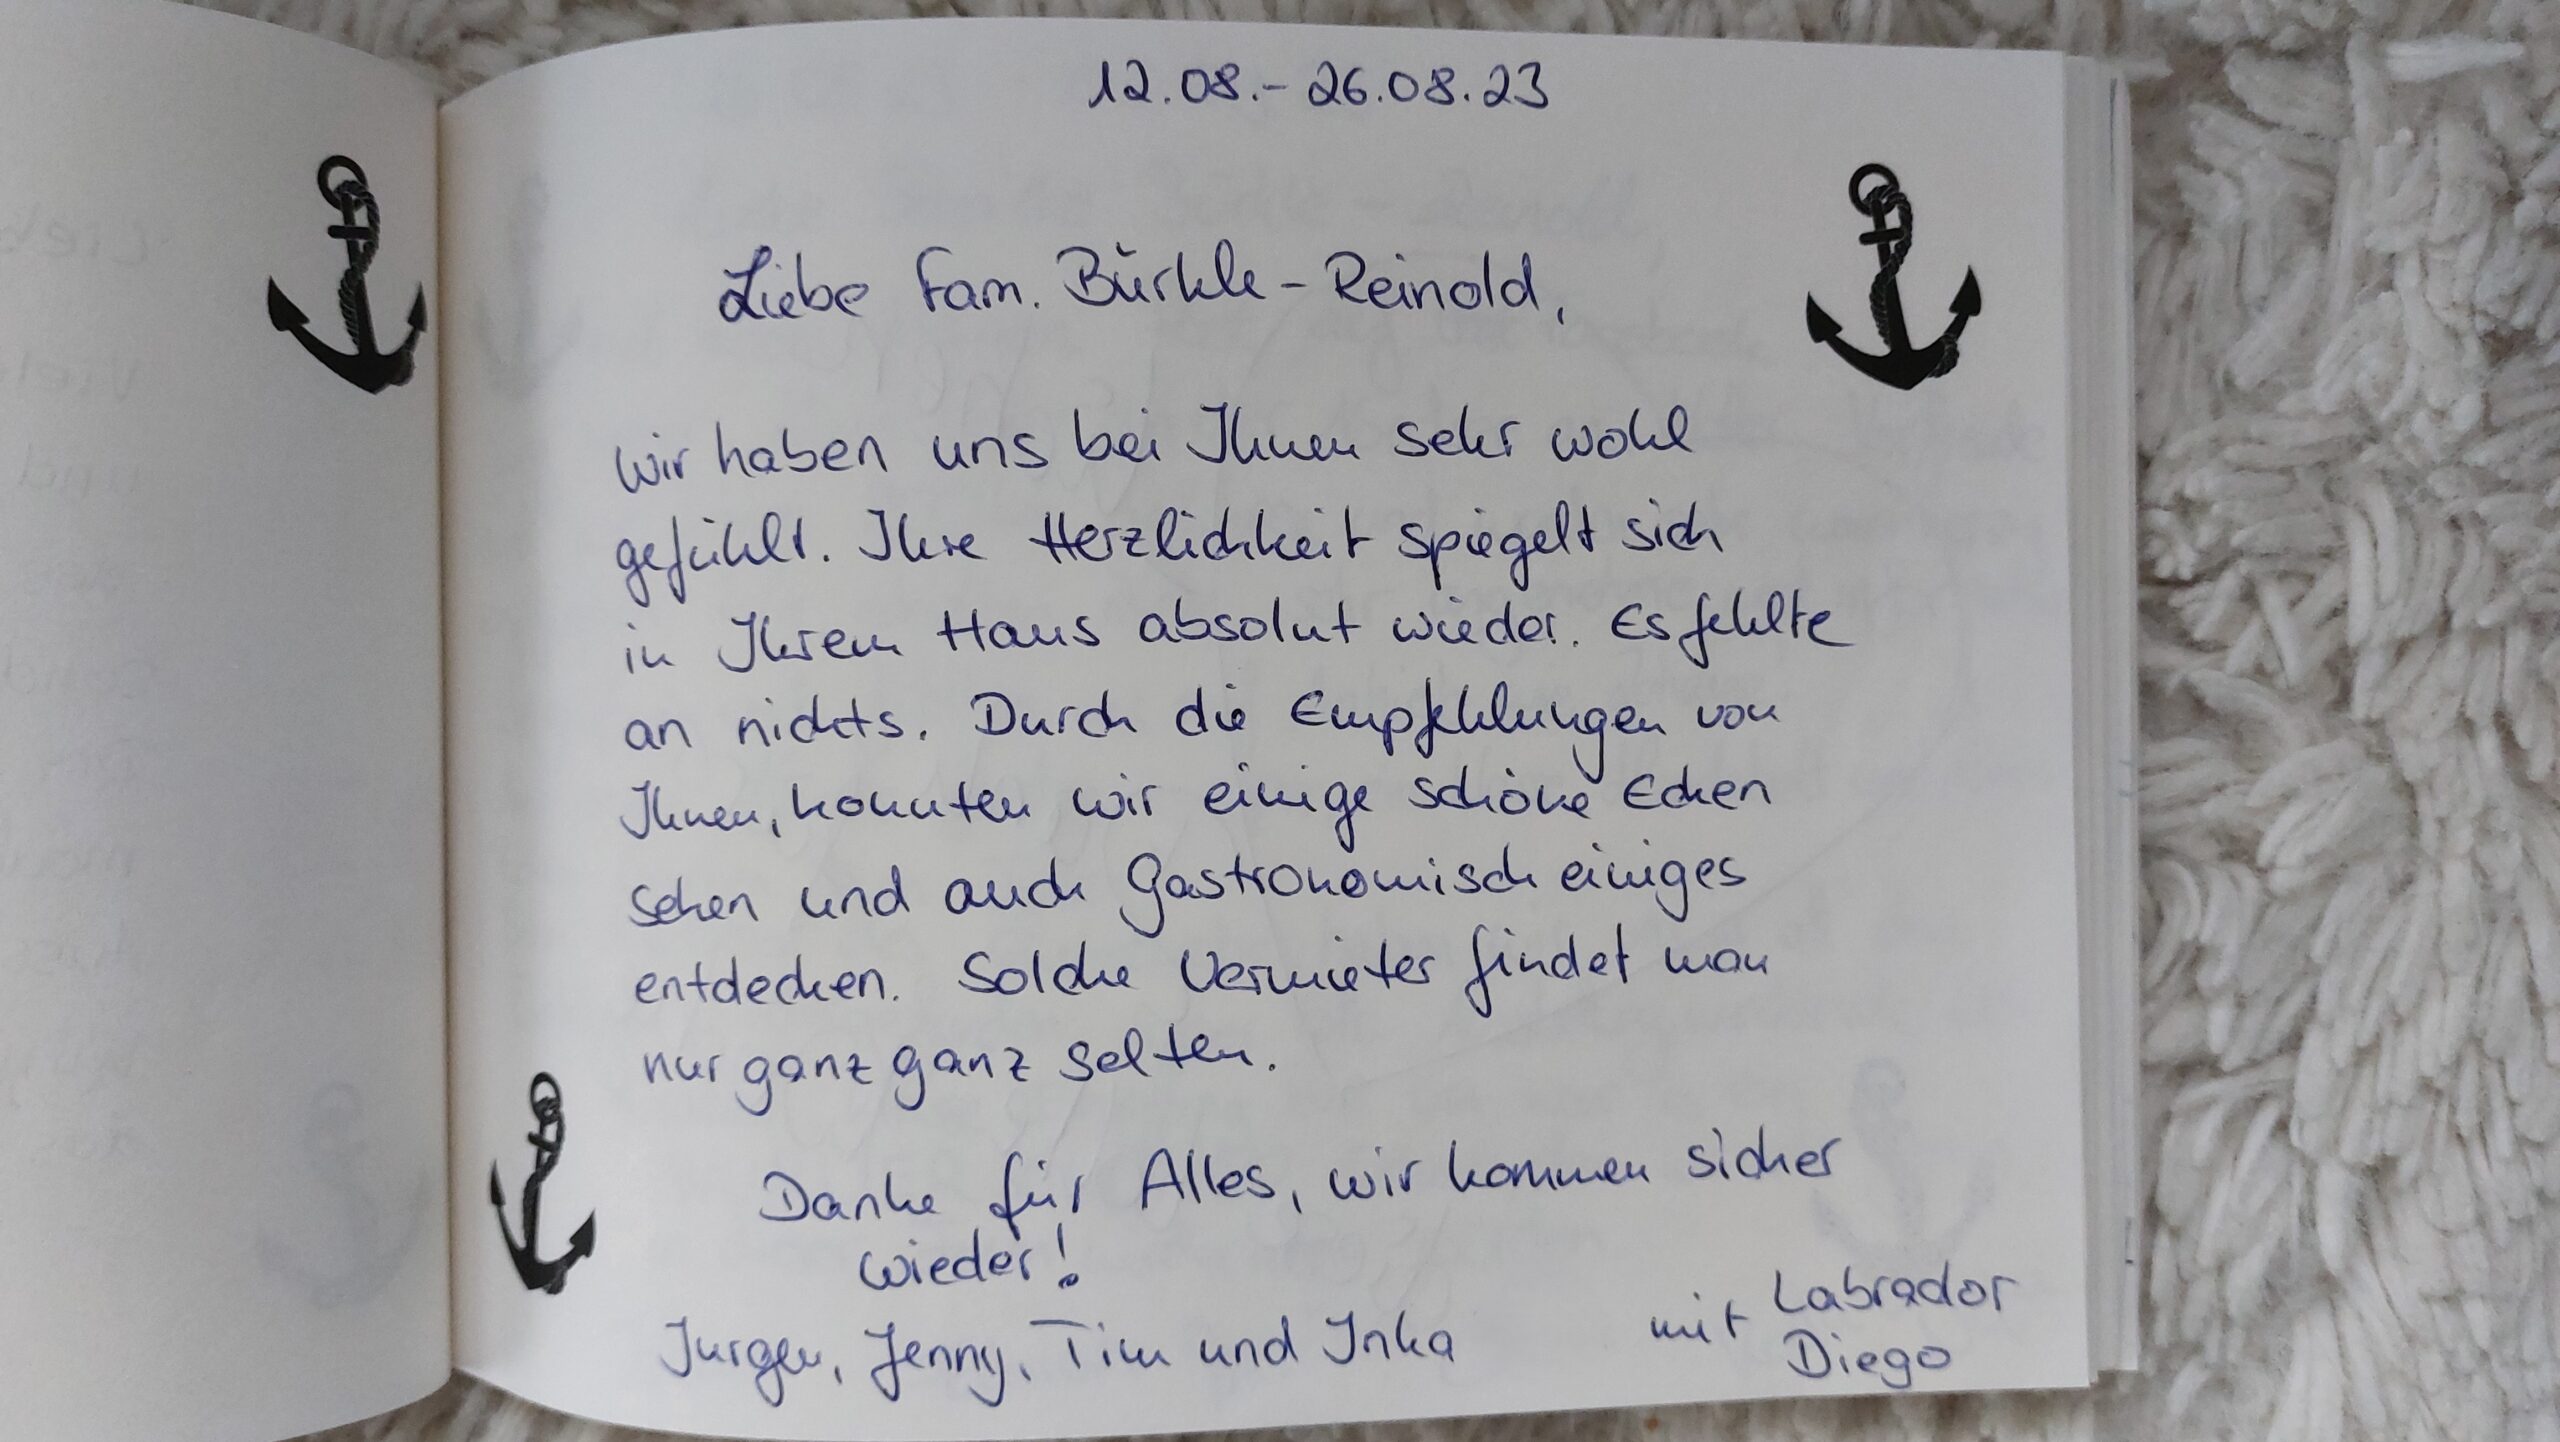 12.08.- 26.08.23
Liebe Fam. Bürkle-Reinold,
wir haben uns bei Ihnen sehr wohl
gefühlt. Ihre Herzlichkeit spiegelt sich
in Ihrem Haus absolut wieder. Es fehlte
an nichts. Durch die Empfehlungen von
Ihnen, konnten wir einige schöne Ecken
sehen und auch Gastronomisch einiges
entdecken. Solche Vermieter findet man
nur ganz ganz selten.
Danke für Alles, wir kommen sicher
wieder!
Jurgen, Jenny, Tim und Inka
mit Labrador
Diego